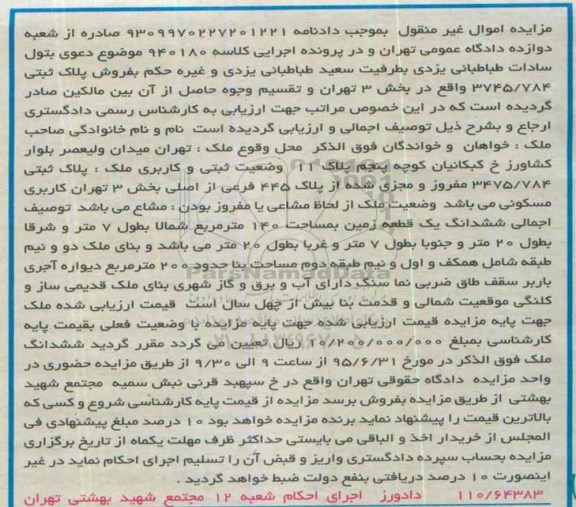 مزایده اموال غیر منقول بموجب دادنامه ۹۳۰۹۹۷۰۲۲۷۲۰۱۲۲۱ صادره از شعبه
دوازده دادگاه عمومی تهران و در پرونده اجرایی کلاسه ۹۴۰۱۸۰ موضوع دعوی بتول
سادات طباطبائی یزدی بطرفیت سعید طباطبائی یزدی و غیره حکم بفروش پلاک ثبتی
۳۷۴۵/۷۸۴ واقع در بخش ۳ تهران و تقسیم وجوه حاصل از آن بین مالکین صادر
گردیده است که در این خصوص مراتب جهت ارزیابی به کارشناس رسمی دادگستری
ارجاع و بشرح ذیل توصیف اجمالی و ارزیابی گردیده است نام و نام خانوادگی صاحب
ملک : خواهان و خواندگان فوق الذکر محل وقوع ملک : تهران میدان ولیعصر بلوار
کشاورز خ کبکانیان کوچه پنجم پلاک ۱۱ وضعیت ثبتی و کاربری ملک : پلاک ثبتی
۳۴۷۵/۷۸۴ مفروز و مجزی شده از پلاک ۴۴۵ فرعی از اصلی بخش ۳ تهران کاربری
مسکونی می باشد وضعیت ملک از لحاظ مشاعی یا مفروز بودن : مشاع می باشد توصیف
اجمالی ششدانگ یک قطعه زمین بمساحت ۱۴۰ مترمربع شمالا بطول ۷ متر و شرقا
بطول ۲۰ متر و جنوبا بطول ۷ متر و غربا بطول ۲۰ متر می باشد و بنای ملک دو و نیم
طبقه شامل همکف و اول و نیم طبقه دوم مساحت بنا حدود ۲۰۰ مترمربع دیواره آجری
باربر سقف طاق ضربی نما سنگ دارای آب و برق و گاز شهری بنای ملک قدیمی ساز و
کلنگی موقعیت شمالی و قدمت بنا بیش از چهل سال است قیمت ارزیابی شده ملک
جهت پایه مزایده قیمت ارزیابی شده جهت پایه مزایده با وضعیت فعلی بقیمت پایه
کارشناسی بمبلغ ۱۰/۲۰۰/۰۰۰/۰۰۰ ریال تعیین می گردد مقرر گردید ششدانگ
ملک فوق الذکر در مورخ ۹۵/۶/۳۱ از ساعت ۹ الی ۹/۳۰ از طریق مزایده حضوری در
واحد مزایده دادگاه حقوقی تهران واقع در خ سپهبد قرنی نبش سمیه مجتمع شهید
بهشتی از طریق مزایده بفروش برسد مزایده از قیمت پایه کارشناسی شروع و کسی که
بالاترین قیمت را پیشنهاد نماید برنده مزایده خواهد بود ۱۰ درصد مبلغ پیشنهادی فی
المجلس از خریدار اخذ و الباقی می بایستی حداکثر ظرف مهلت یکماه از تاریخ برگزاری
مزایده بحساب سپرده دادگستری واریز و قبض آن را تسلیم اجرای احکام نماید در غیر
اینصورت ۱۰ درصد دریافتی بنفع دولت ضبط خواهد گردید .
۱۱۰/۶۴۳۸۳ دادورز اجرای احکام شعبه ۱۲ مجتمع شهید بهشتی تهران
ParsNamadData